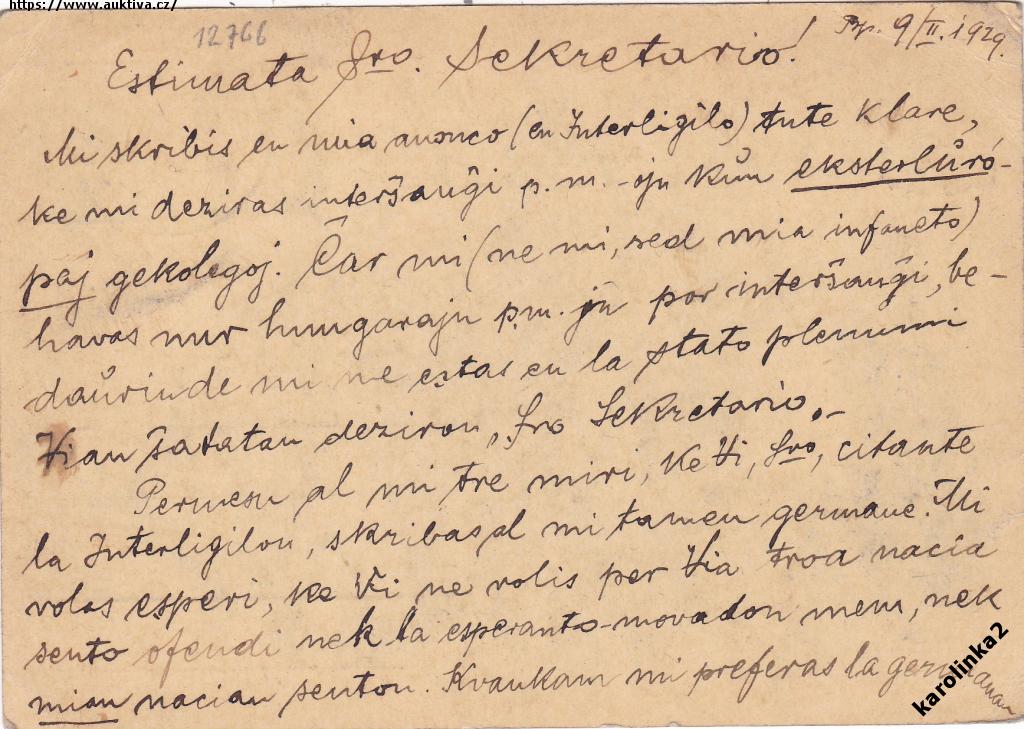 https://www.auktiva.cz/
12766
Bp. 9/II. 1929.
Estimata Sro. Sekretario!
Mi skribis en mia anonco (en Interligilo) tute klare,
ke mi deziras interŝanĝi p.m.-ojn kun eksterŭró-
paj gekolegoj. Ĉar mi (ne mi, sed mia infaneto)
havas nur hungarajn p.m. jn por interŝanĝi, be-
daŭrinde mi ne estas en la stato plenumi
Vian ŝatatan deziron, Sro Sekretario.-
Permesu al mi tre miri, ke Vi, Sro, citante
la Interligilon, skribas al mi tamen germane. Mi
volas esperi, ke Vi ne volis per Via troa nacia
sento ofendi nek la esperanto-movadon mem, nek
mian nacian senton. Kvankam mi preferas la germanan
karolinka2